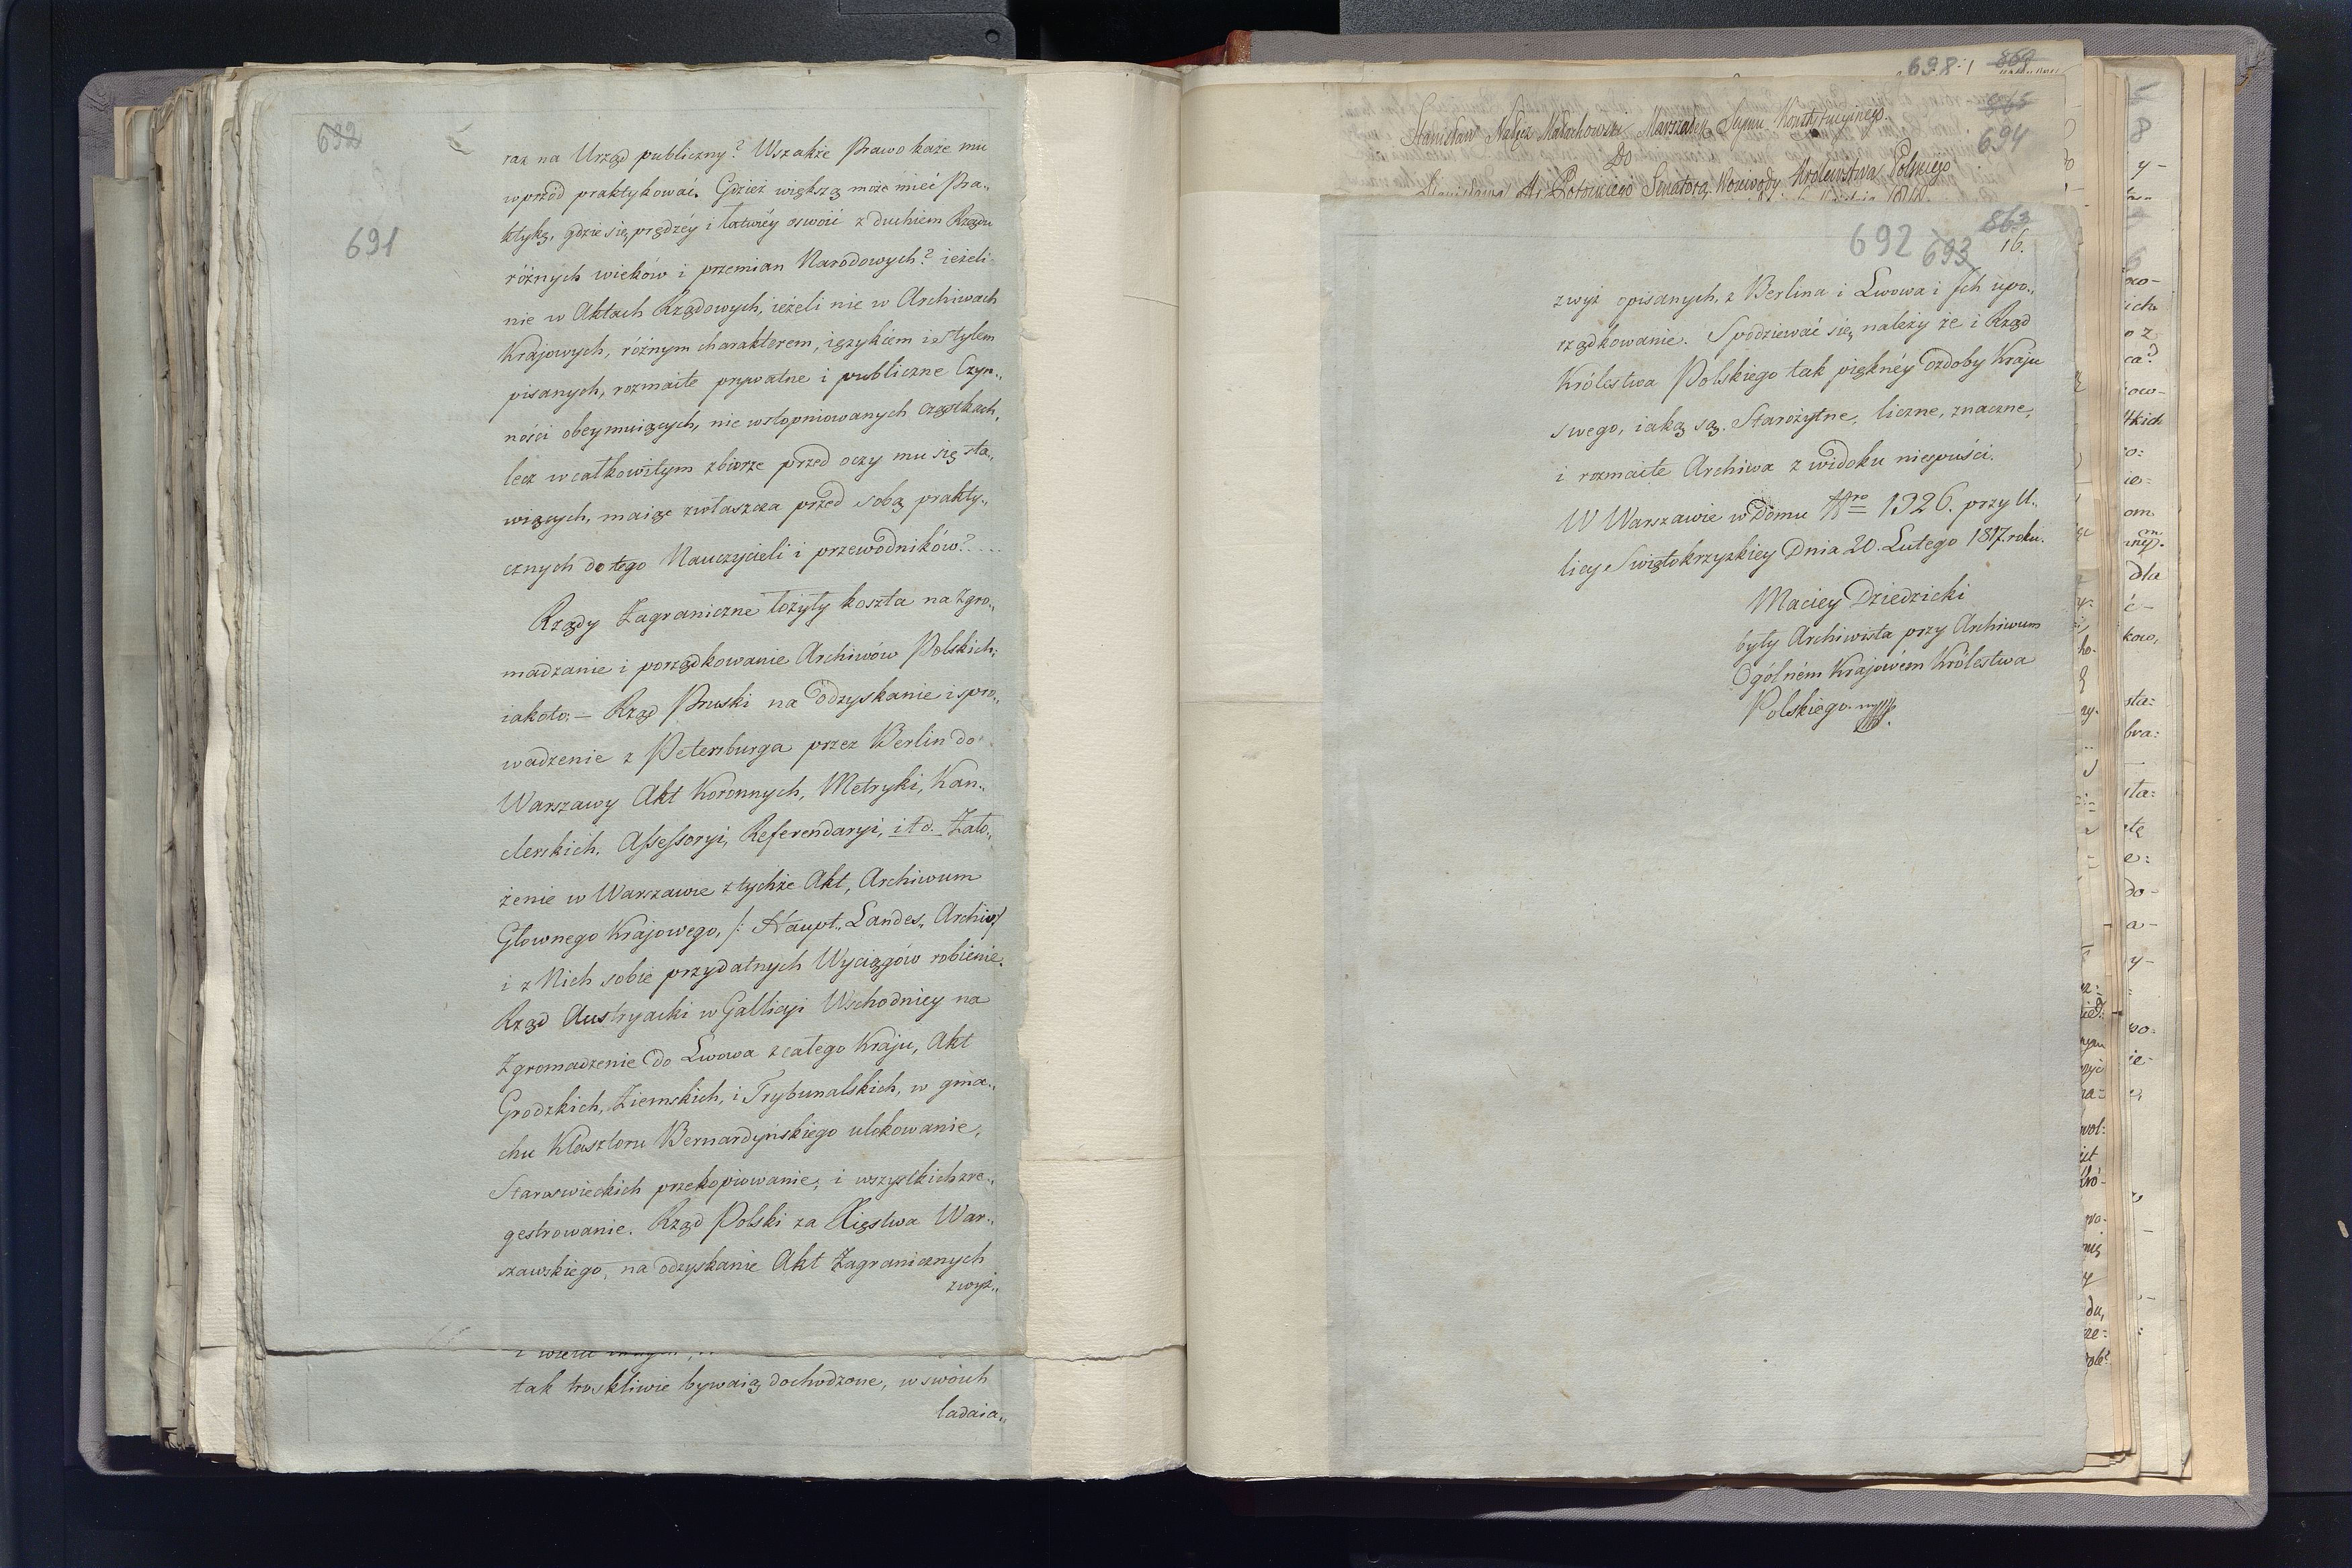 692
691
raz na Urząd publiczny? Wszakże Prawo każe mu
wprzód praktykować. Gdzież większą może mieć Pra„
ktykę, gdzie się prędzéy i łatwiéy oswoić z duchiem Rządu
różnych wieków i przemian Narodowych? ieżeli
nie w Aktach Rządowych, ieżeli nie w Archiwach
Krajowych, różnym charakterem, ięzykiem i stylem
pisanych, rozmaite prywatne i publiczne Czyn„
ności obeymuiących, nie wstopniowanych cząstkach,
lecz w całkowitym zbiorze przed oczy mu się sta„
wiących, maiąc zwłaszcza przed sobą prakty„
cznych do tego Nauczycieli i przewodników? ....
Rządy Zagraniczne łożyły koszta na Zgro„
madzanie i porządkowanie Archiwów Polskich;
iakoto: — Rząd Pruski na odzyskanie i spro„
wadzenie z Petersburga przez Berlin do
Warszawy Akt Koronnych, Metryki, Kan„
clerskich, Assessoryi, Referendaryi, itd. Zało„
żenie w Warszawie z tychże Akt, Archiwum
Głownego Krajowego, /: Haupt„ Landes„ Archiv/
i z Nich sobie przydatnych Wyciągów robienie.
Rząd Austryacki w Gallicyi Wschodniey na
Zgromadzenie do Lwowa z całego Kraju, Akt
Grodzkich, Ziemskich, i Trybunalskich, w gma„
chu Klasztoru Bernardyńskiego ulokowanie,
Staroswieckich przekopiowanie, i wszystkich zre„
gestrowanie. Rząd Polski za Xięstwa War„
szawskiego, na odzyskanie Akt Zagranicznych
zwyż„
tak troskliwie bywaią dochodzone, w swoich
ladaia„
698
869
Stanisław Nałęcz Małachowski Marszałek Seymu Konstytucyinego
865
694
Do
Stanisława Hr. Potockiego Senatora, Woiewody Królewstwa Polskiego
863
692 693
16.
zwyż opisanych, z Berlina i Lwowa i Ich upo„
rządkowanie. Spodziewać się należy że i Rząd
Królestwa Polskiego tak piękney Ozdoby Kraju
swego, iaką są. Starożytne, liczne, znaczne,
i rozmaite Archiwa z widoku niespuści.
W Warszawie w Domu Nro 1326. przy U„
licy Swiętokrzyzkiey Dnia 20. Lutego 1817. roku.
Maciey Dziedzicki
były Archiwista przy Archiwum
Ogólném Krajowém Królestwa
Polskiego.